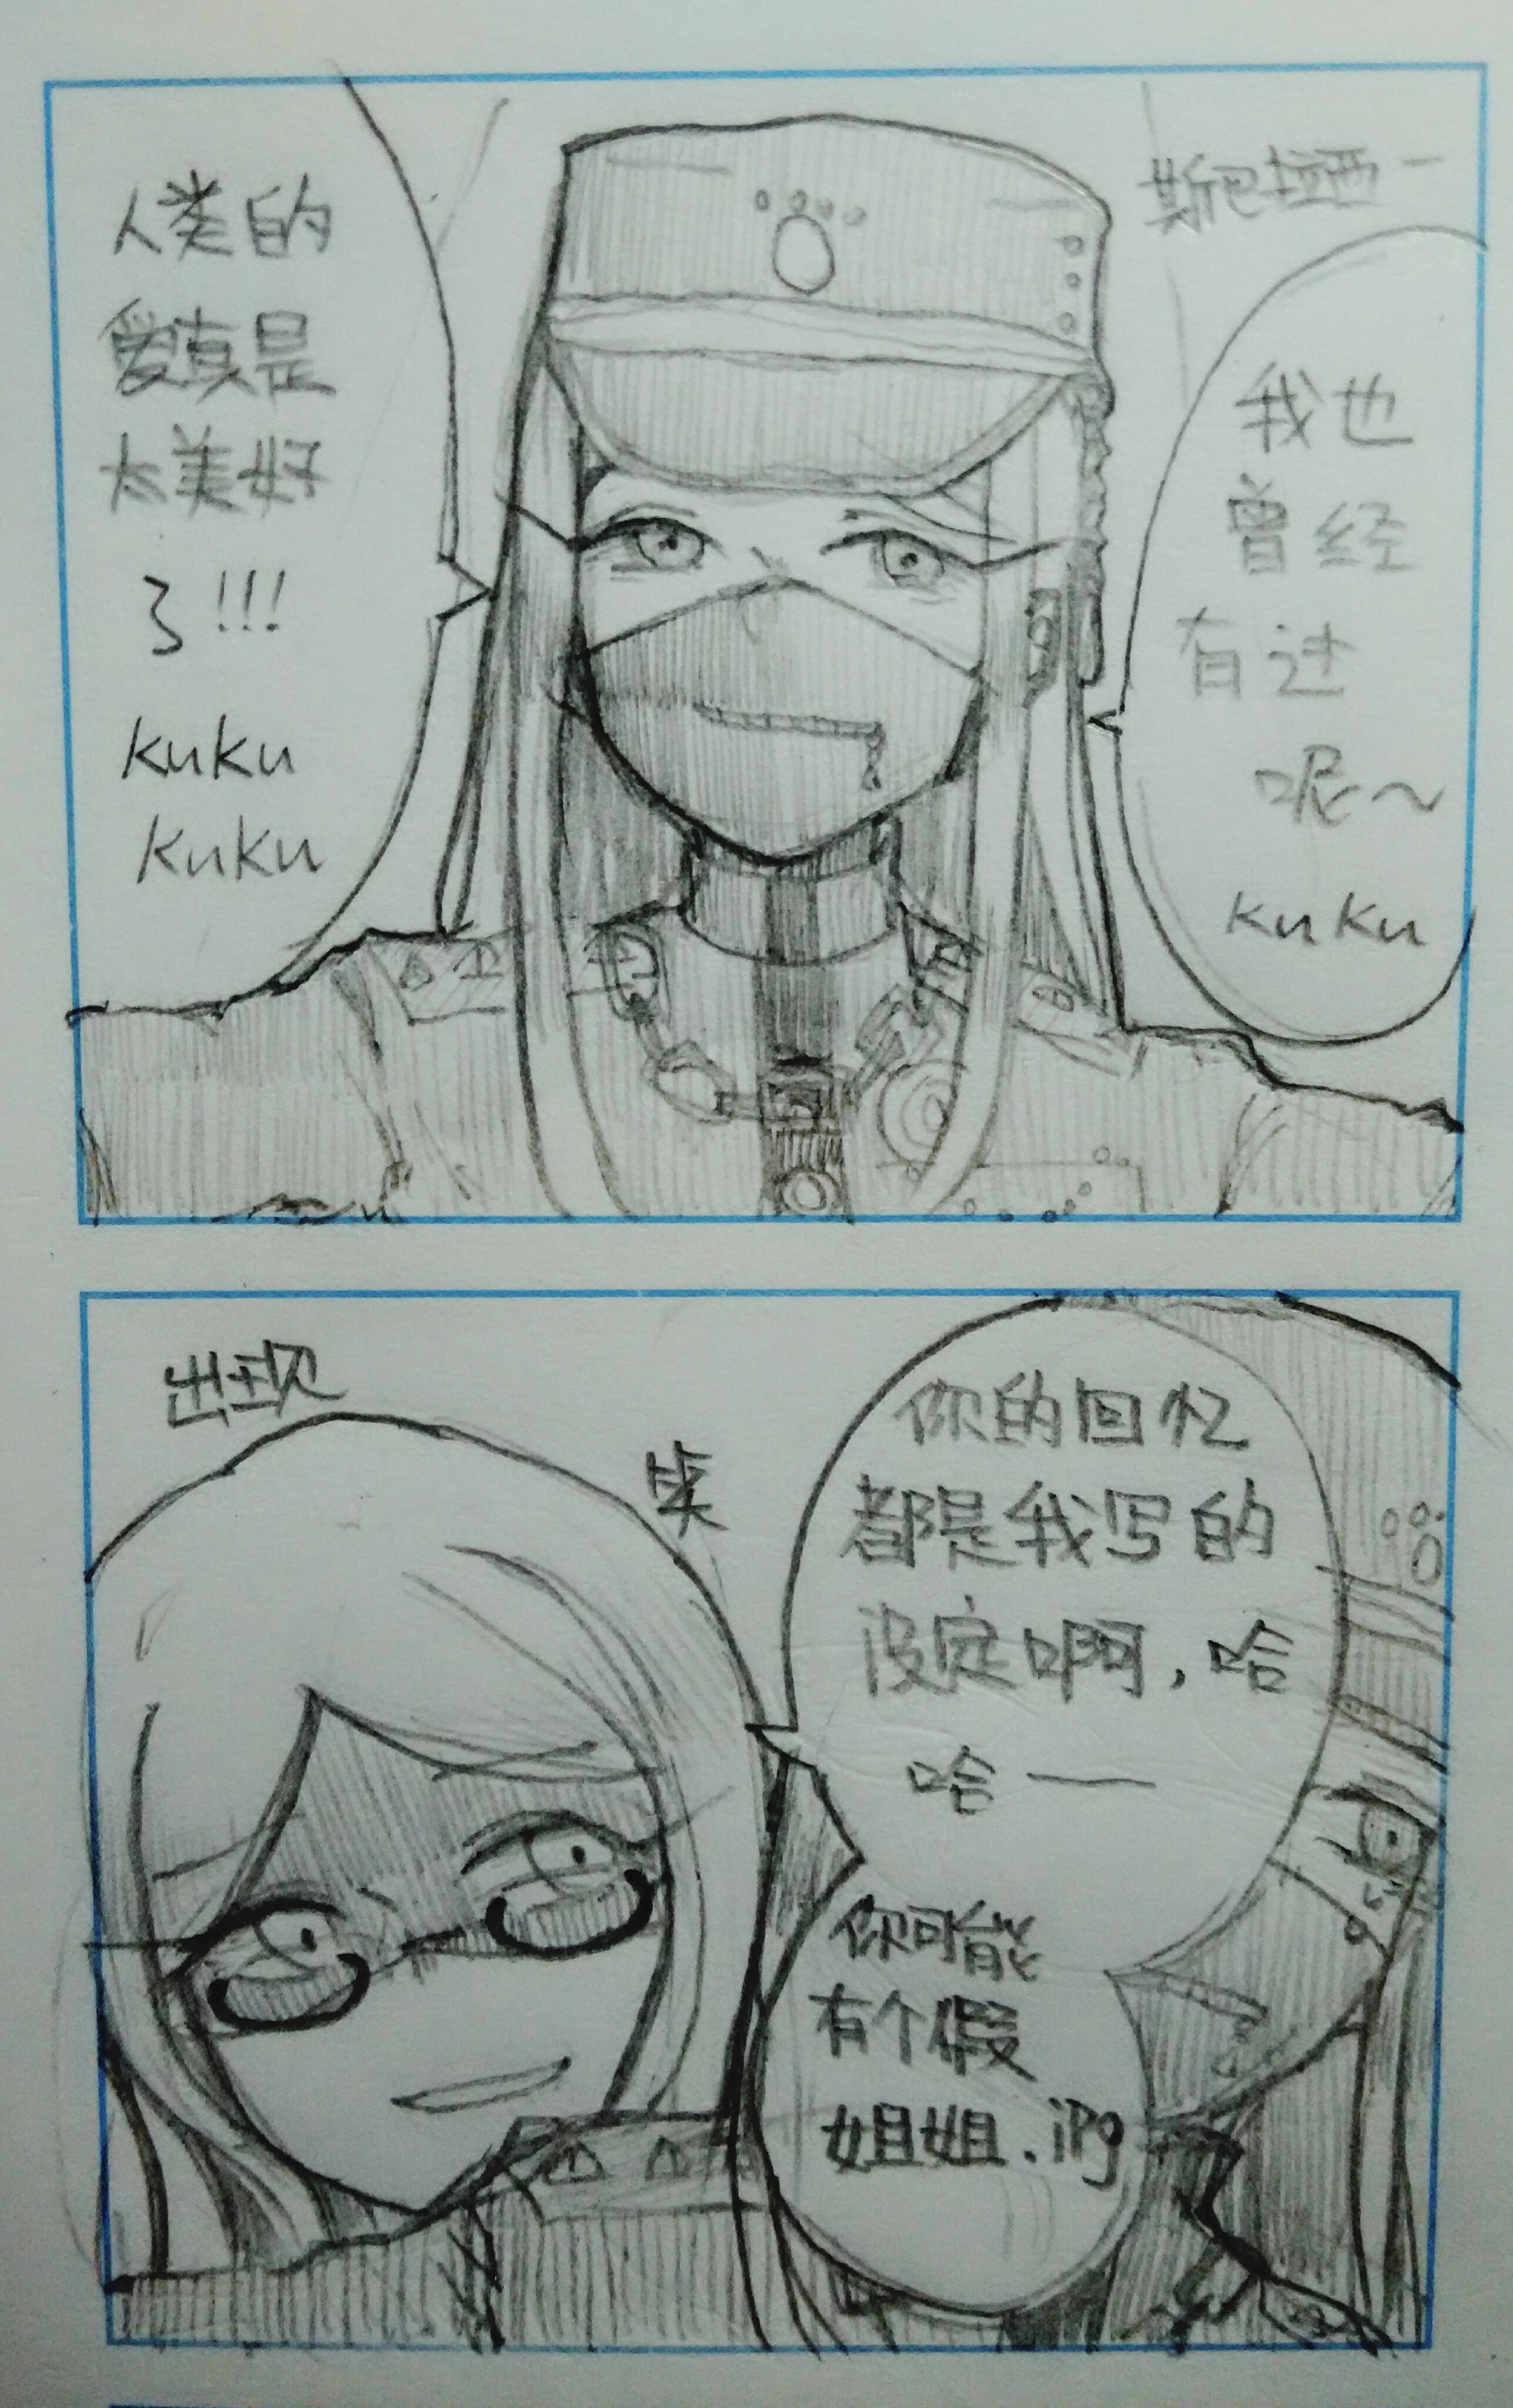 人类的
爱真是
太美好
了!!!
kuku
kuku
斯巴拉西一
我也
曾经
有过
呢～
kuku
出现
笑
你的回忆
都是我写的
设定啊，哈
哈一
你可能
有个假
姐姐.jpg